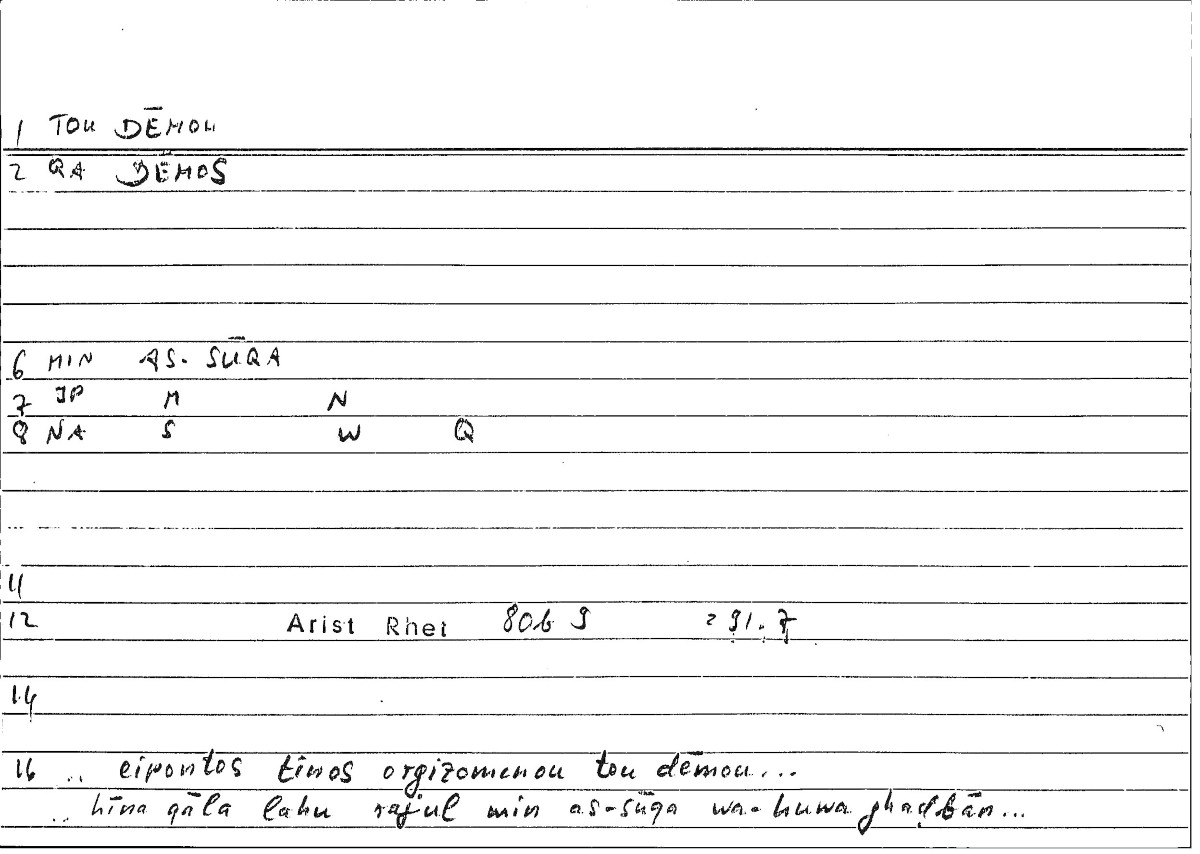 1 TOU DĒMOU
2 QA DĒMOS
6 MIN AS-SŪQA
7 JP M N
8 NA S W Q
11
12 Arist Rhet 80b 9 91.7
14
16 .. eipontos tinos orgizomenou tou dēmou...
.. hīna qāla lahu rajul min as-sūqa wa-huwa ghaḍbān...